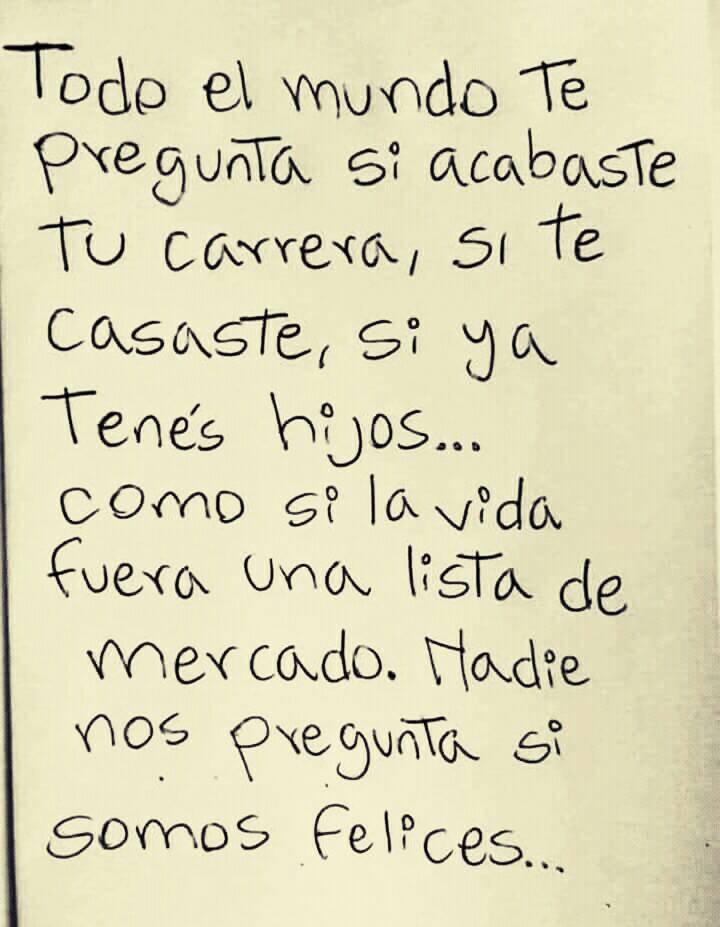 Todo el mundo te
pregunta si acabaste
tu carrera, si te
casaste, si ya
tenés hijos...
como si la vida
fuera una lista de
mercado. Nadie
nos pregunta si
somos felices...